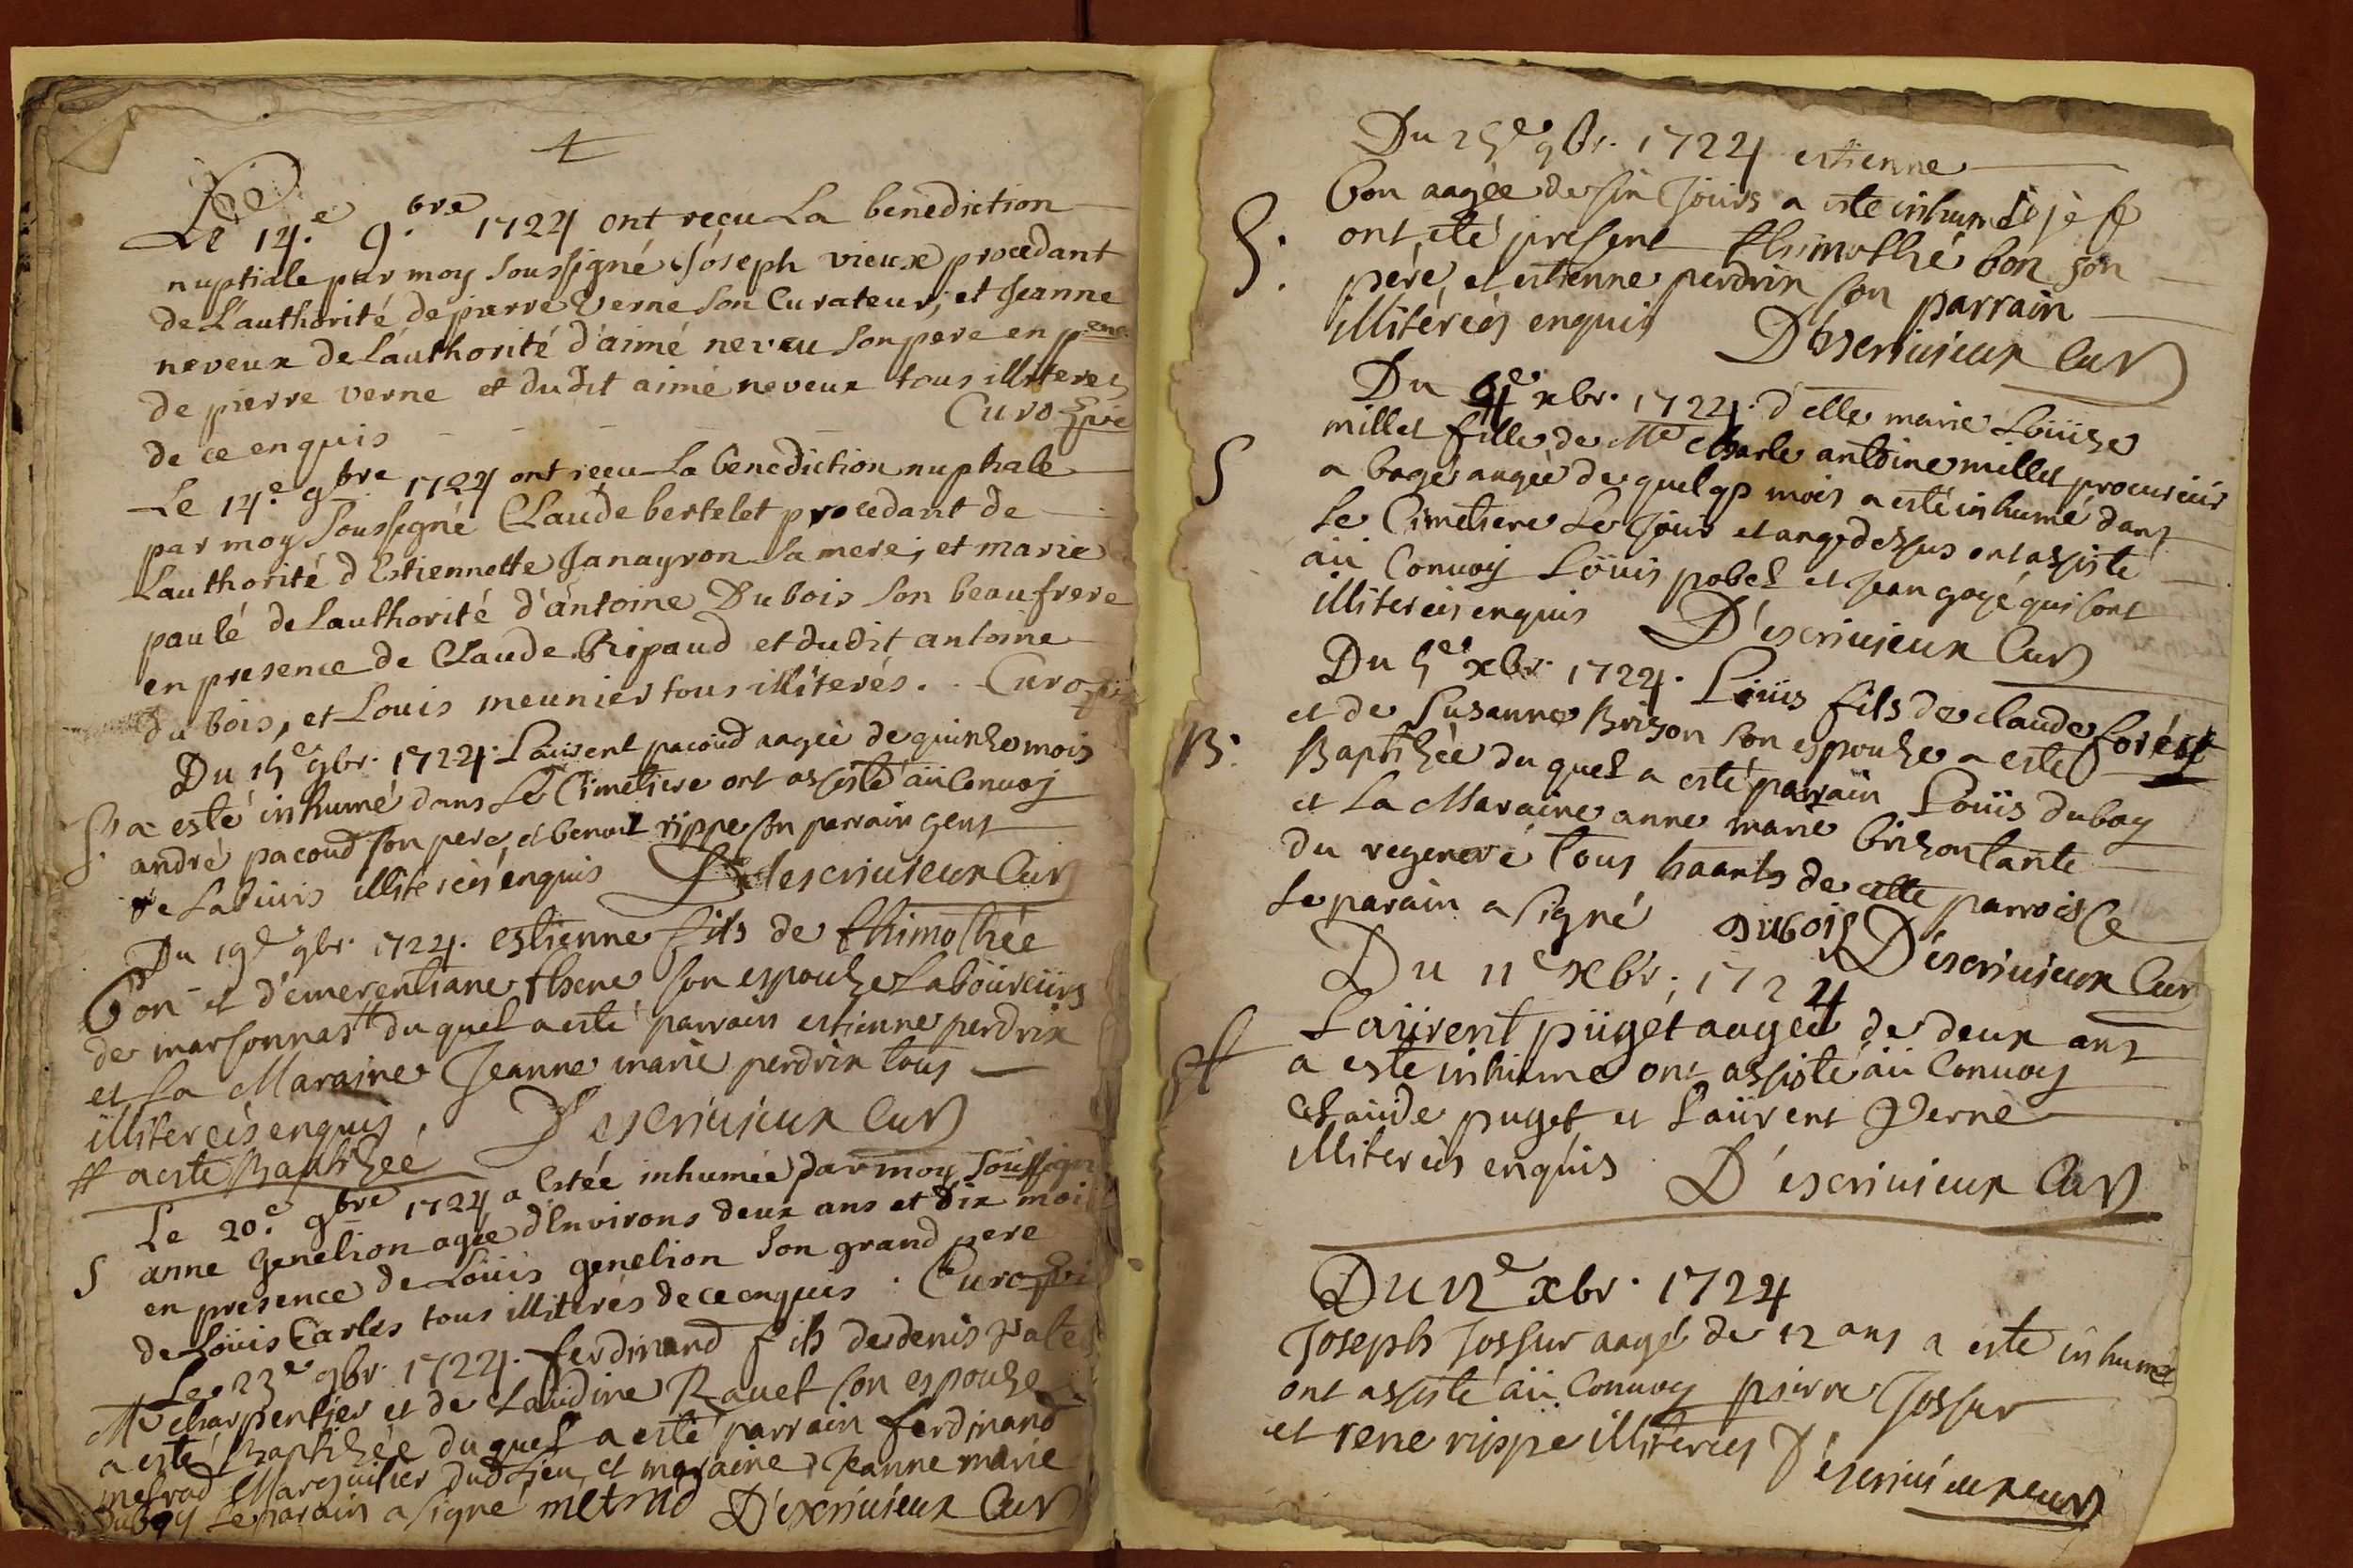 Le 14.e 9.bre 1724 ont reçu La benediction
nuptiale par moy soussigné Joseph vieux procedant
de L'authorité de pierre Verne son Curateur, et Jeanne
neveux de L'authorité d'aimé neveu son pere en pnce
de pierre verne et dudit aimé neveux tous illiteres
de ce enquis Curo
Le 14.e 9bre 1724 ont reçu La benediction nuptiale
par moy soussigné Claude bertelet procedant de
Lauthorité d'Estiennette Janayron sa mere, et marie
paulé de Lauthorité d'antoine Dubois son beaufrere
en presence de Claude Ripaud et dudit antoine
dubois, et Louis meunier tous illiterés. Curo
Du 15e 9br. 1724. Laurent pacoud aagée de quinze mois
S. a esté inhumé dans Le Cimetiere ont assisté aü Convoy
andré pacoud son pere, et benoit rippe son parrain gens
de Labeurs illiterées enquis D'escriuieux Curé
Du 19e 9br. 1724. estienne fils de thimothée
bon et d'emerentiane thene son espouze Laboureurs
de marsonnas # du quel a esté parrain estienne perdrix
et La Maraine Jeanne marie perdrix tous
illiterées enquis. D'escriuieux Curé
# a esté Baptizée
Le 20.e 9bre 1724 a estée inhumée par moy soussigné
S anne Genelion agée d'Environs deux ans et dix moi
en presence de Loüis genelion son grand pere
de Loüis Carles tous illiterés de ce enquis. Curo
Le 23e 9br. 1724. ferdinand fils de denis
Me charpentier et de Claudine Rauet son espouze
a esté Baptizée du quel a esté parrain ferdinand
metrad Marguilier dud Lieu, et maraine Jeanne marie
duboy Le parain a signé metrad D'escriuieux Curé
Du 25e 9br. 1724 estienne
bon aagée de six Jours a esté inhumé
S. ont eté present thimothé bon son
père, et estienne perdrix son parrain
illitéréés enquis D'escriuieux Curé
Du 4e xbr. 1724. d'elle marie Loüize
millet fille de Me Charle antoine millet procureur
S a bagé aagée de quelqs mois a esté inhumé dans
Le Cimetiere Le Jour et an q dessus ont assisté
aü Convoy Loüis pobel et Jean goyé qui sont
illiterées enquis D'escriuieux Curé
Du 5e xbr. 1724. Loüis fils de claude forést
et de Susanne Brizon son espouze a esté
B. Baptizée du quel a esté parrain Loüis duboy
et La Maraine anne marie brizon tante
du regeneré tous haants de cette parroisse
Le parain a signé Dubois D'escriuieux Curé
Du 11e xbr. 1724
Laürent püget aagée de deux ans
a esté inhumé ont assisté aü Convoy
Claüde puget et Laürent Verne
illiterées enquis D'escriuieux Curé
Du 12e xbr. 1724
Joseph Jossur aagé de 12 ans a esté inhumée
ont assisté aü Convoy pierre Jossur
et rene rippe illiterées D'escriuieux curé